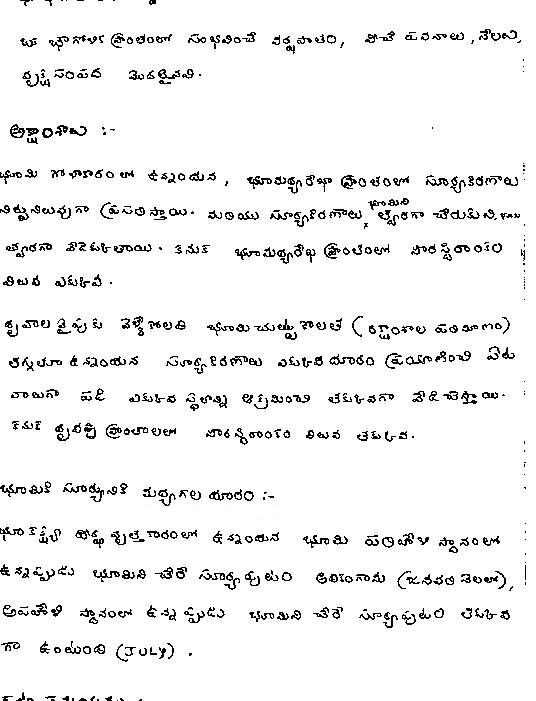 ఒక భౌగోళిక ప్రాంతంలో సంభవించే వర్షపాతం, వీచే పవనాలు, నేలలు,
వృక్ష సంపద మొదలైనవి.
అక్షాంశాలు :-
భూమి గోళాకారంలో ఉన్నందున, భూమధ్యరేఖా ప్రాంతంలో సూర్యకిరణాలు
నిట్టనిలువుగా ప్రసరిస్తాయి. మరియు సూర్యకిరణాలు భూమిని త్వరగా చేరుకుని
త్వరగా వేడెక్కుతాయి. కనుక భూమధ్యరేఖ ప్రాంతంలో సౌరస్థిరాంకం
విలువ ఎక్కువ.
ధృవాల వైపుకు వెళ్ళేకొలది భూమి చుట్టు కొలత (అక్షాంశాల పరిమాణం)
తగ్గుతూ ఉన్నందున సూర్యకిరణాలు ఎక్కువ దూరం ప్రయాణించి ఏటవాలుగా
పడి ఎక్కువ స్థలాన్ని ఆక్రమించి తక్కువగా వేడిచేస్తాయి.
కనుక ధృవపు ప్రాంతాలలో సౌరస్థిరాంకం విలువ తక్కువ.
భూమికి సూర్యునికి మధ్యగల దూరం :-
భూకక్ష్య దీర్ఘ వృత్తాకారంలో ఉన్నందున భూమి పరిహేళి స్థానంలో
ఉన్నప్పుడు భూమిని చేరే సూర్యపుటం అధికంగాను (జనవరి నెలలో),
అపహేళి స్థానంలో ఉన్నప్పుడు భూమిని చేరే సూర్యపుటం తక్కువ
గా ఉంటుంది (JULY).